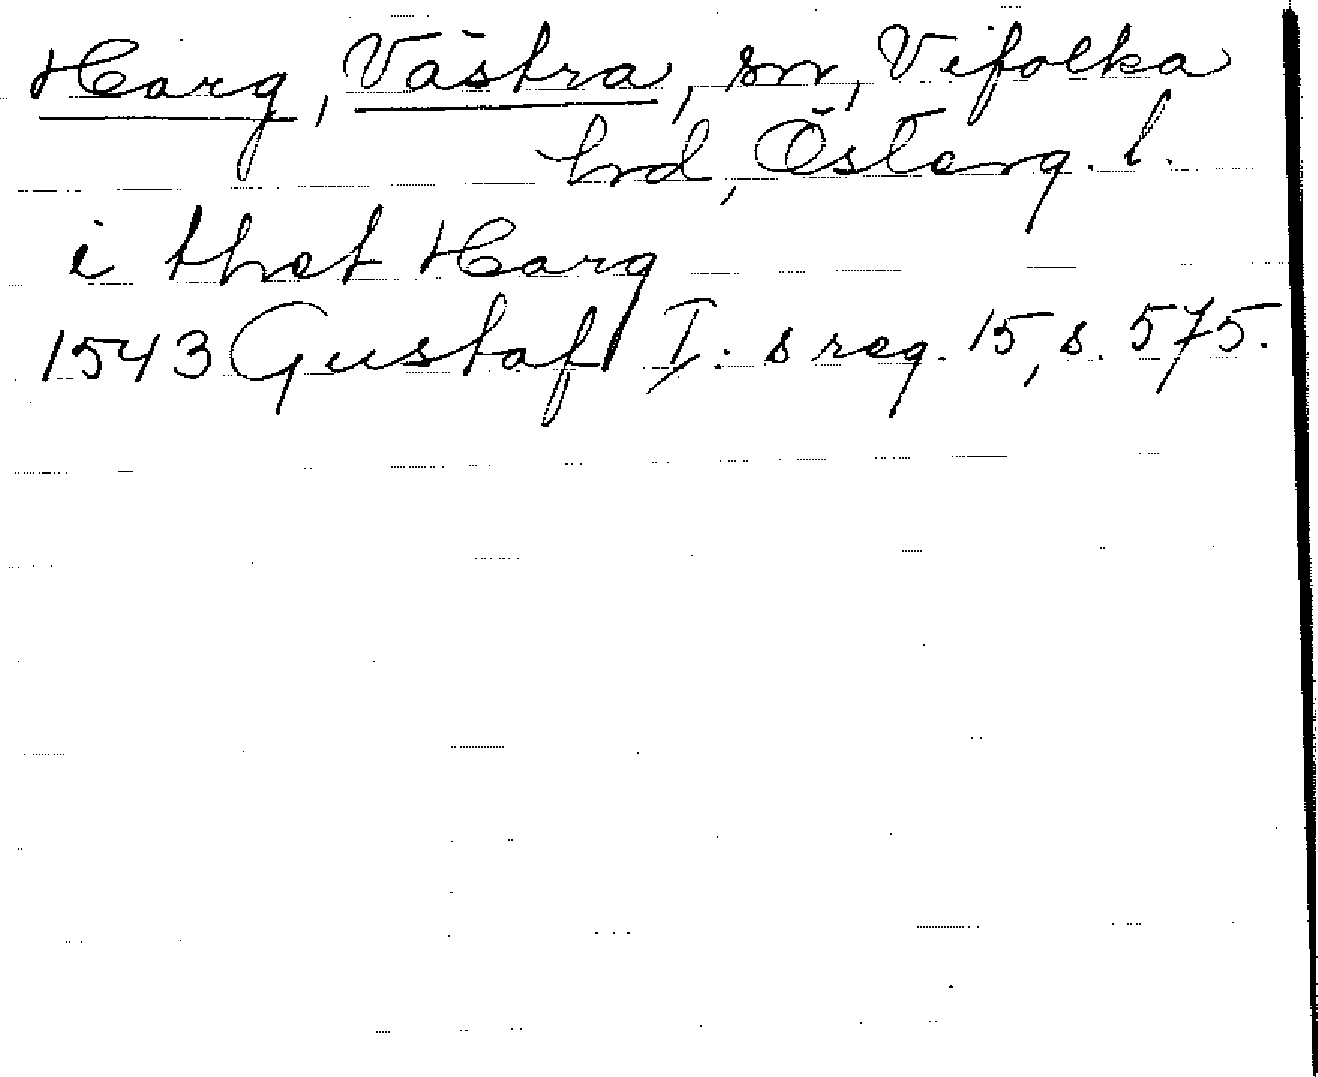 Harg, Västra, sn, Vifolka
hrd, Österg. l.
i thet Harg
1543 Gustaf I: s reg. 15, s. 575.